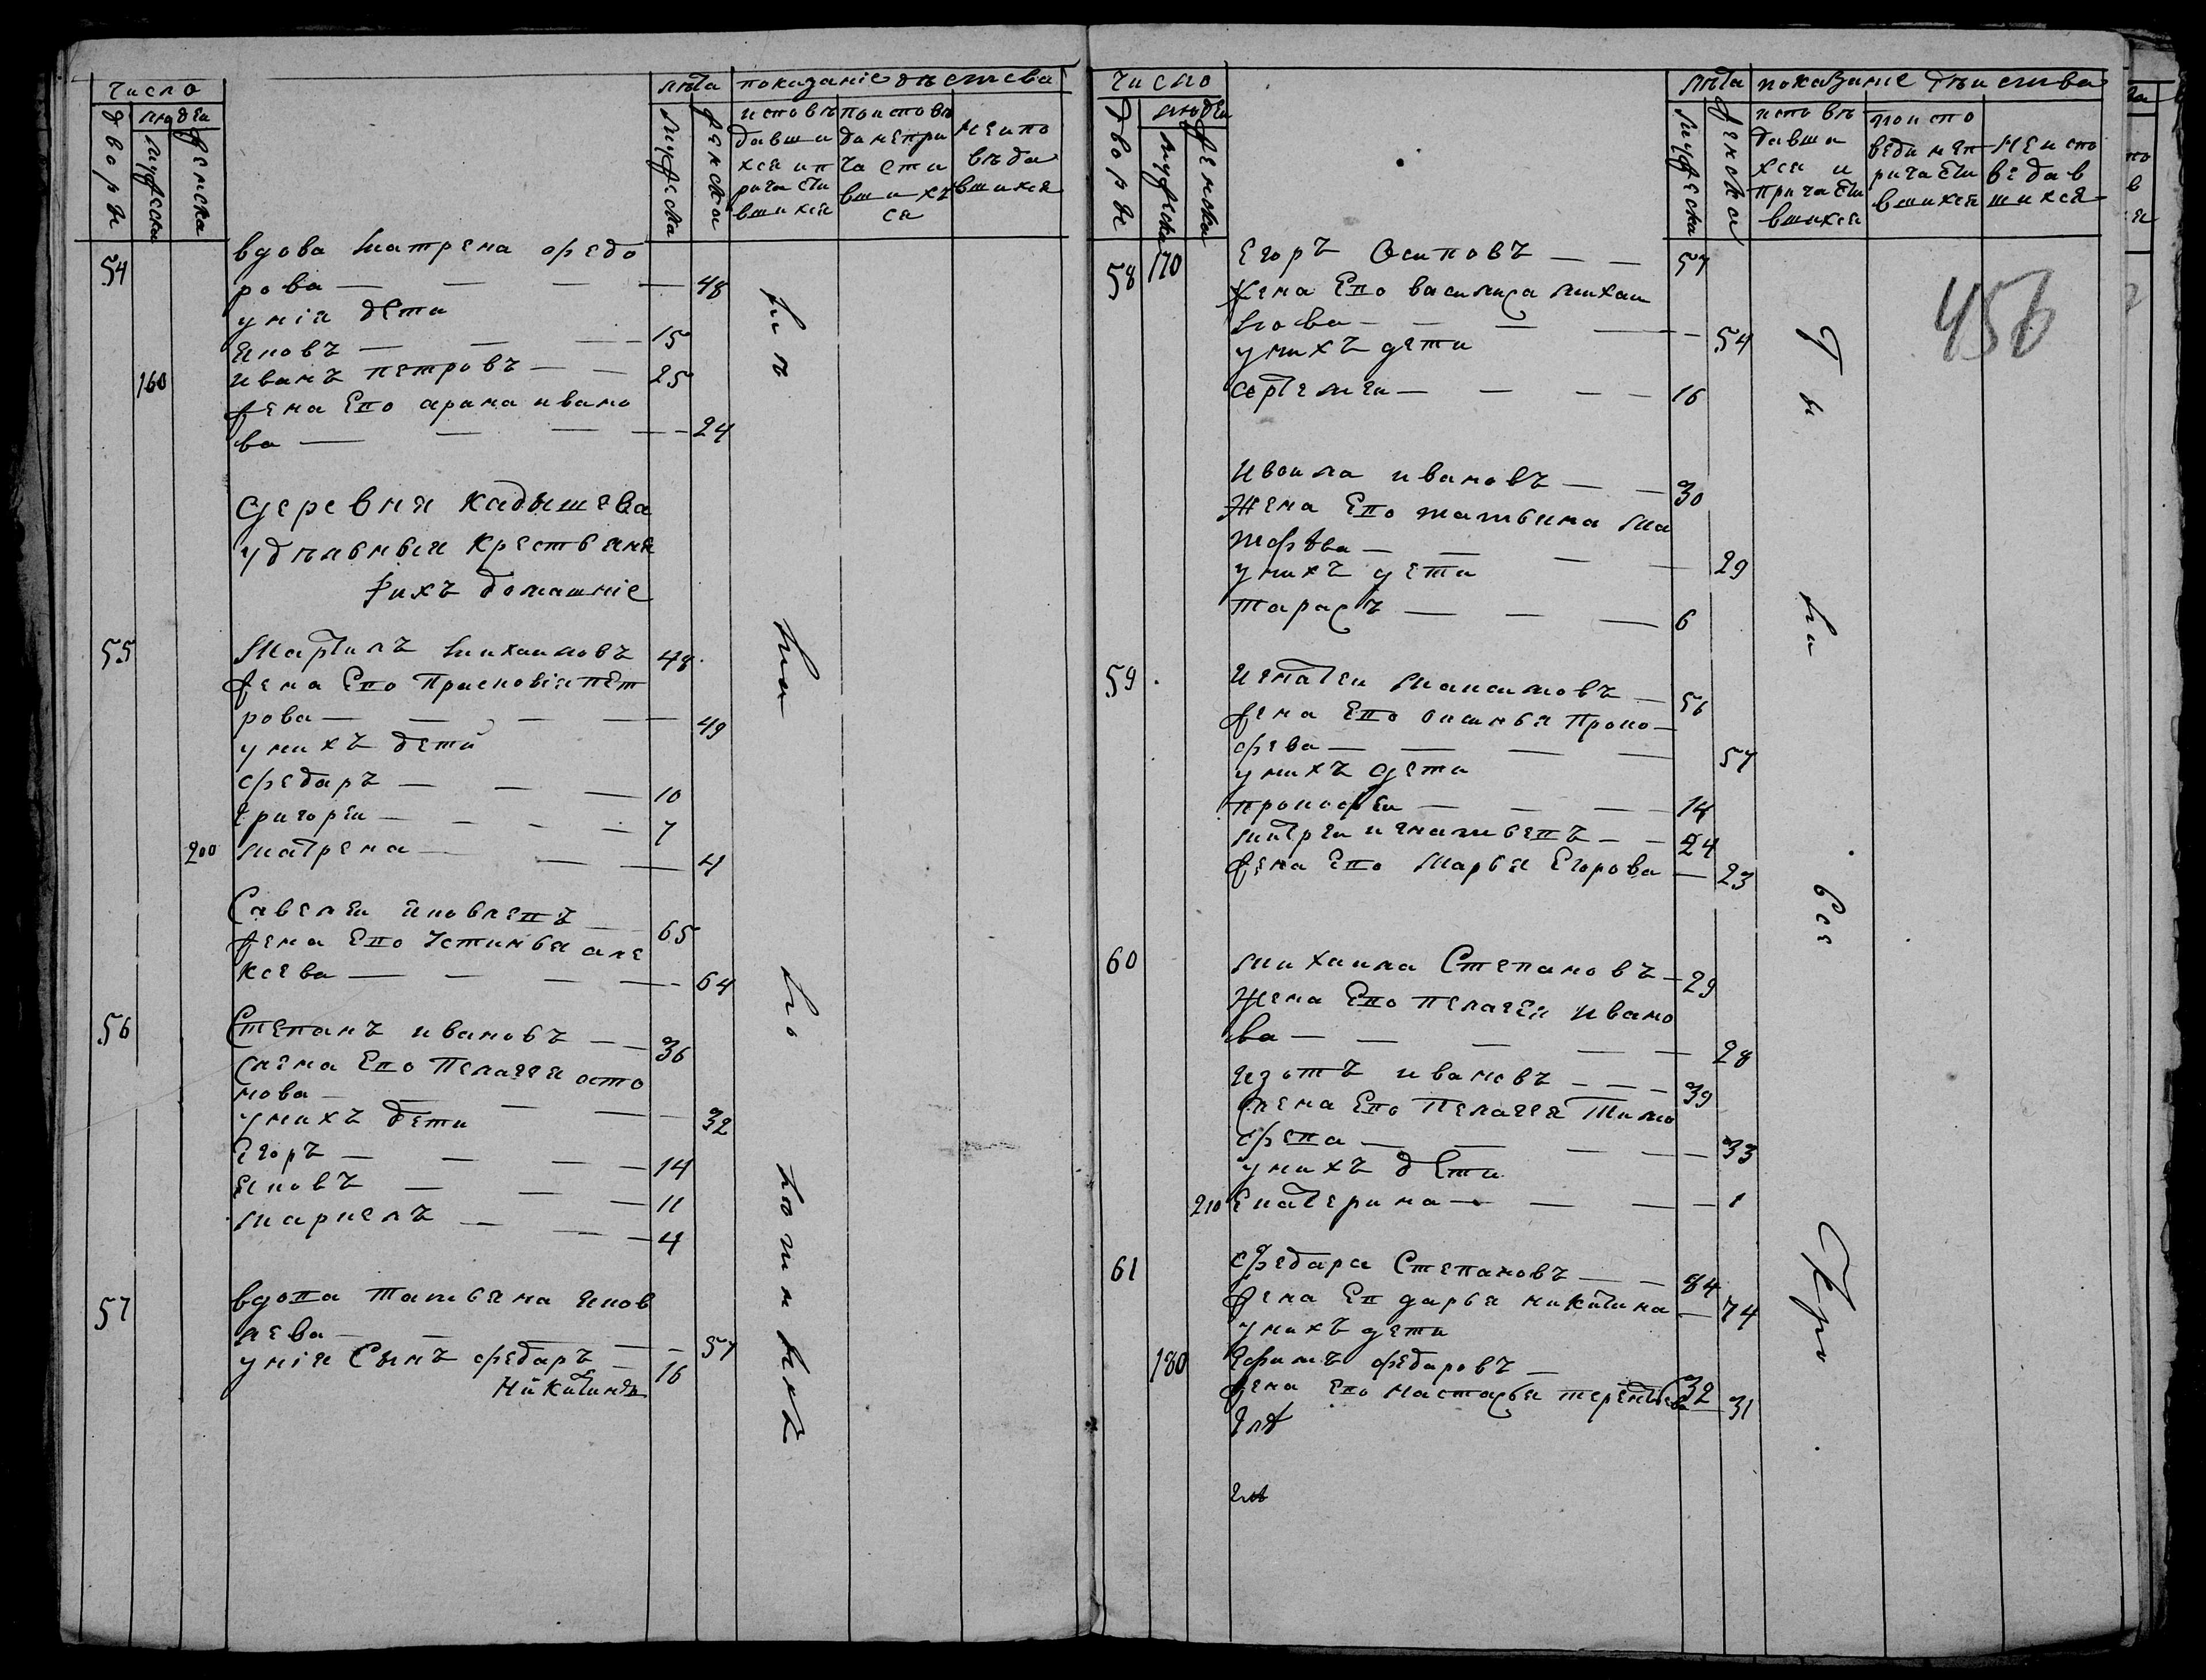 число
лѣта показаніе дѣиства
дворы
людеи
мужеска
женска
мужеска
женска
исповѣ
давши
хся и п
ричасти
вшихся
поисповѣ
да непри
части
вшихъ
ся
неиспо
вѣда
вшихся
54 вдова матрена федо
рова — — — — 48
унія дети
яковъ — — — 15
160 иванъ петровъ — — 25
жена Его арина ивано
ва — — — — 24
деревня кадышева
удѣлныя крествяня
ихъ домашніе
55 Мартинъ михаиловъ 48
жена Его Прасковія пет
рова — — — — 49
унихъ дети
федаръ — — — 10
григореи — — — — 7
200 матрена — — — 4
Савелеи яковлевъ — 65
жена Его Устинья але
ксева — — — — 64
56 Степанъ ивановъ — — 36
жена Его Пелагея
нова — — — — 32
унихъ дети
Егоръ — — — — 14
яковъ — — — 11
маркелъ — — — 4
57 вдова татьяна яков
лева — — — — 57
унія Сынъ федаръ — 16
Никитинъ
число
лѣта показание дѣиства
дворы
людеи
мужеска
женска
мужеска
женска
исповѣ
давши
хся и
причасти
вшихся
поиспо
веди неп
ричасти
вшихся
неиспо
ведав
шихся
456
58 170 Егоръ Осиповъ — — 57
жена Его василиса михаи
лова — — — — 54
унихъ дети
сергеи — — — — 16
ивоила ивановъ — — 30
жена Его татьяна ма
тфѣва — — — — 29
унихъ дети
тарасъ — — — 6
59 игнатеи максимовъ — 56
жена Его оксинья проко
фева — — — — 57
унихъ дети
прокофеи — — — 14
митреи игнатьевъ — — 24
жена Его марья Егорова — 23
60 михаила Степановъ — 29
жена Его пелагея ивано
ва — — — — — 28
изотъ ивановъ — — — 39
жена Его пелагея тимо
фева — — — — 33
унихъ дети
210 Екатерина — — — — 1
61 федара Степановъ — — 84
жена Ев дарья никитина — 74
унихъ дети
180 Ефимъ федаровъ — 32
жена его настасья терентьева — 31